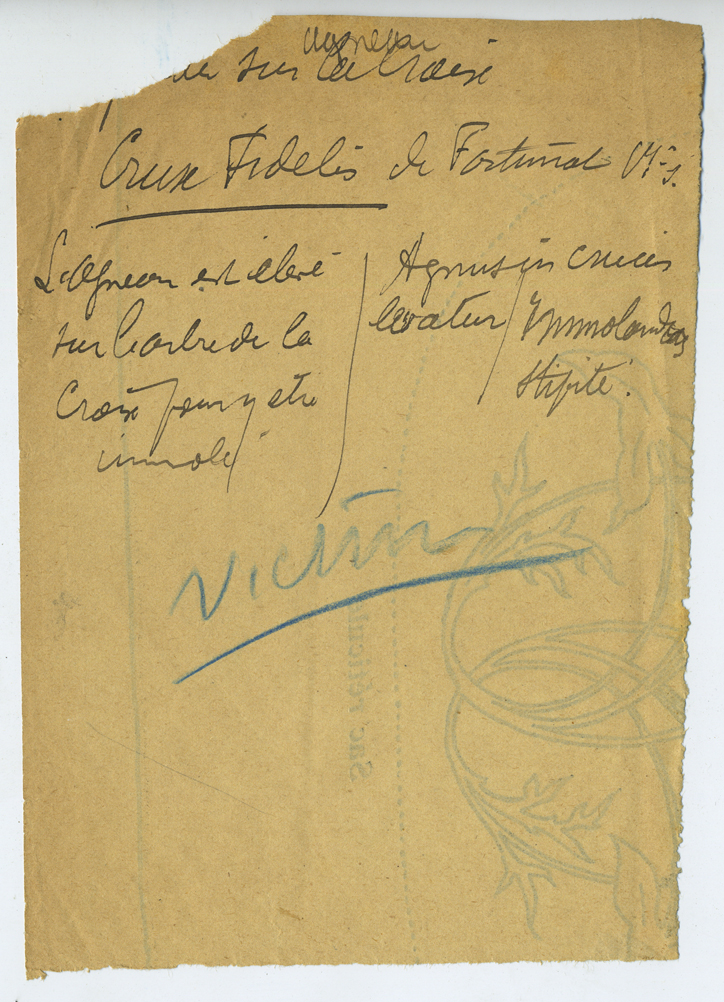 agneau
sur la Croix
Crux Fidelis de Fortunat VIe s.
L'Agneau est élevé
sur l'arbre de la
Croix pour y être
immolé
Agnus in crucis
levatur Immolandus
stipite.
Victime